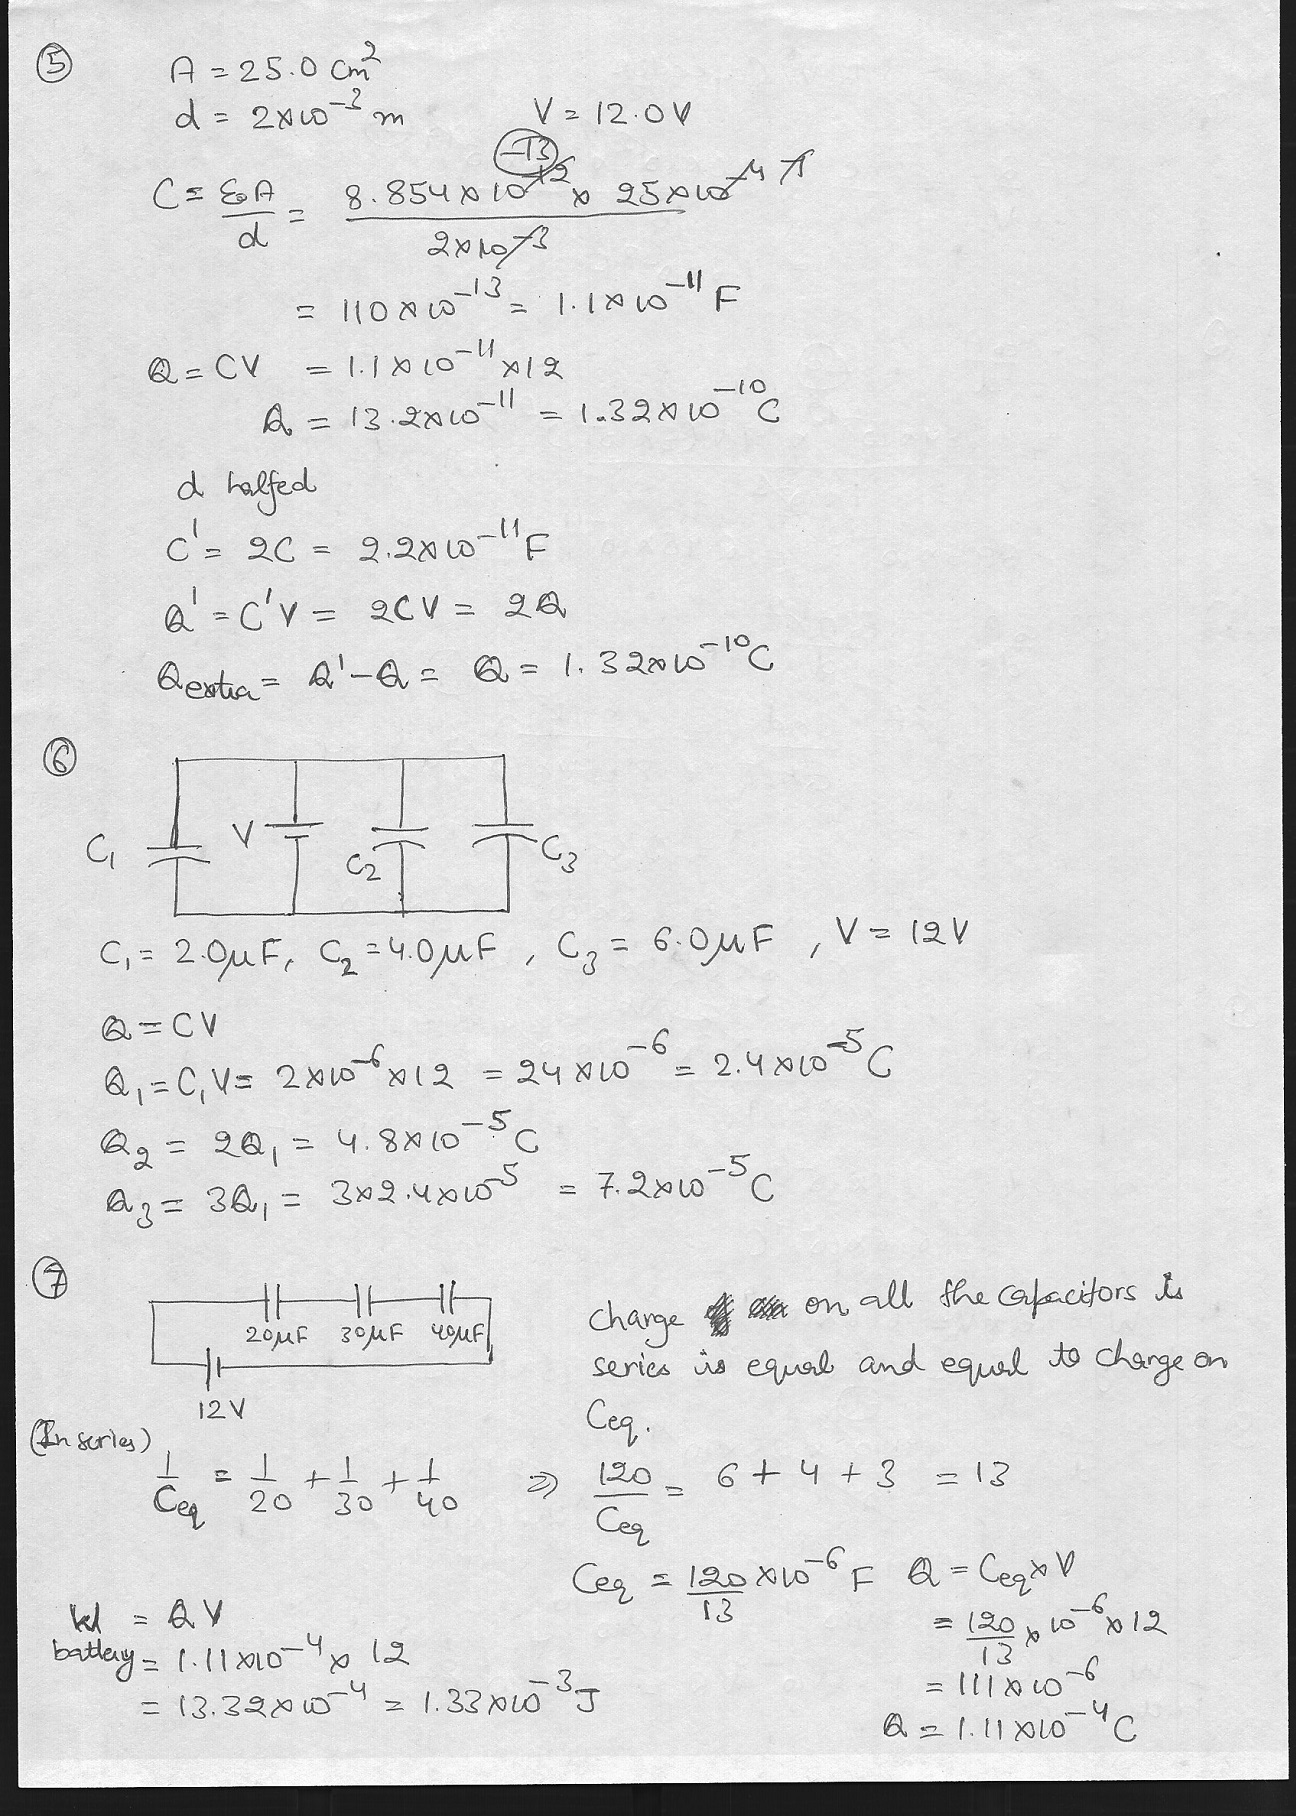 ⑤
A = 25.0 cm²
d = 2×10⁻³ m V = 12.0 V
C = ε₀A/d = 8.854×10⁻¹² × 25×10⁻⁴ / 2×10⁻³
-13
= 110×10⁻¹³ = 1.1×10⁻¹¹ F
Q = CV = 1.1×10⁻¹¹ ×12
Q = 13.2×10⁻¹¹ = 1.32×10⁻¹⁰ C
d halfed
C' = 2C = 2.2×10⁻¹¹ F
Q' = C'V = 2CV = 2Q
Qextra = Q' - Q = Q = 1.32×10⁻¹⁰ C
⑥
C₁ V C₂ C₃
C₁ = 2.0μF, C₂ = 4.0μF, C₃ = 6.0μF, V = 12V
Q = CV
Q₁ = C₁V = 2×10⁻⁶×12 = 24×10⁻⁶ = 2.4×10⁻⁵ C
Q₂ = 2Q₁ = 4.8×10⁻⁵ C
Q₃ = 3Q₁ = 3×2.4×10⁻⁵ = 7.2×10⁻⁵ C
⑦
20μF 30μF 40μF
12V
charge on all the capacitors is
series is equal and equal to charge on
Ceq.
(In series)
1/Ceq = 1/20 + 1/30 + 1/40 ⇒ 120/Ceq = 6 + 4 + 3 = 13
Ceq = 120/13 ×10⁻⁶ F Q = Ceq×V
= 120/13 × 10⁻⁶ × 12
= 111×10⁻⁶
Q = 1.11×10⁻⁴ C
W battery = QV
= 1.11×10⁻⁴ × 12
= 13.32×10⁻⁴ = 1.33×10⁻³ J